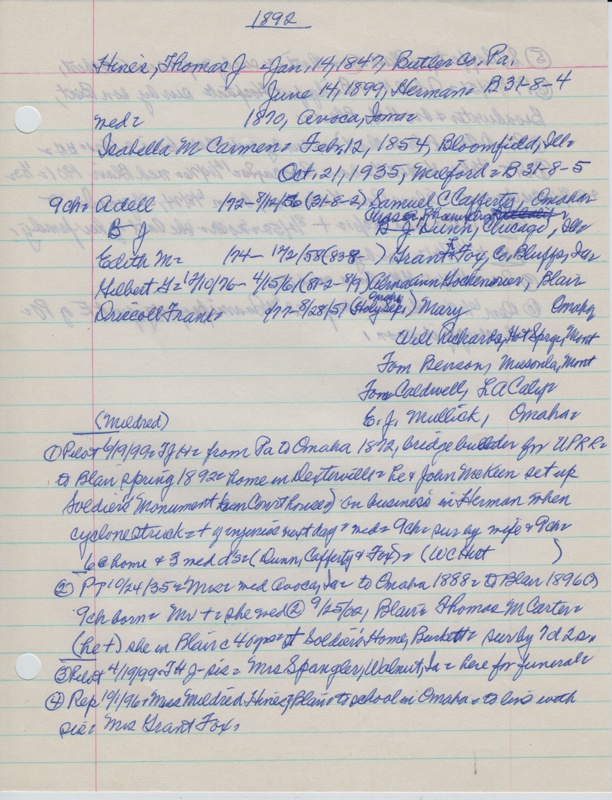 1892
Hines, Thomas J = Jan, 14, 1847, Butler Co, Pa,
June 14, 1899, Herman = B31-8-4
med = 1870, Avoca, Iowa =
Isabella M Carmen = Feb, 12, 1854, Bloomfield, Ill =
Oct, 21, 1935, Milford = B31-8-5
9ch = Adell (31-8-2) Samuel C Cafferty, Omaha
B J B J Dunn, Chicago, Ills
Edith M = Grant Fox, Co, Bluffs, Ia =
Gilbert G = 12/10/76 - 4/15/61 Blair
Driscoll Frank = 8/28/51 (Holy Sep) Mary Omaha
Omaha
Will Richards, Hot Sprgs, Mont
Tom Benson, Missoula, Mont
Tom Caldwell, LA Calif =
E. J. Mullick, Omaha =
(Mildred)
① Pilot 6/19/99 = TJH = from Pa to Omaha 1872, bridge builder for UPRR =
to Blair spring 1892 = home in Dexterville = he & John McKeen set up
Soldiers Monument Court house) on business in Herman when
cyclone struck = + of injuries next day = med = 9ch = sur by wife & 9ch =
6 @ home & 3 med ds = (Dunn, Cafferty & Fox) = (WC Hist )
② PT 10/24/35 = Mrs = med Avoca, Ia = to Omaha 1888 = to Blair 1896
9ch born = Mr + = she med ② 9/25/02, Blair = Thomas M Carter =
(he +) she in Blair c 40 yrs Soldiers Home, Burkett = sur by 7d 2s =
③ Pilot 4/19/99 = TH J = sis = Mrs Spangler, Walnut, Ia = here for funeral =
④ Rep 10/1/96 = Miss Mildred Hines, Blair = to school in Omaha = to live with
sis = Mrs Grant Fox =